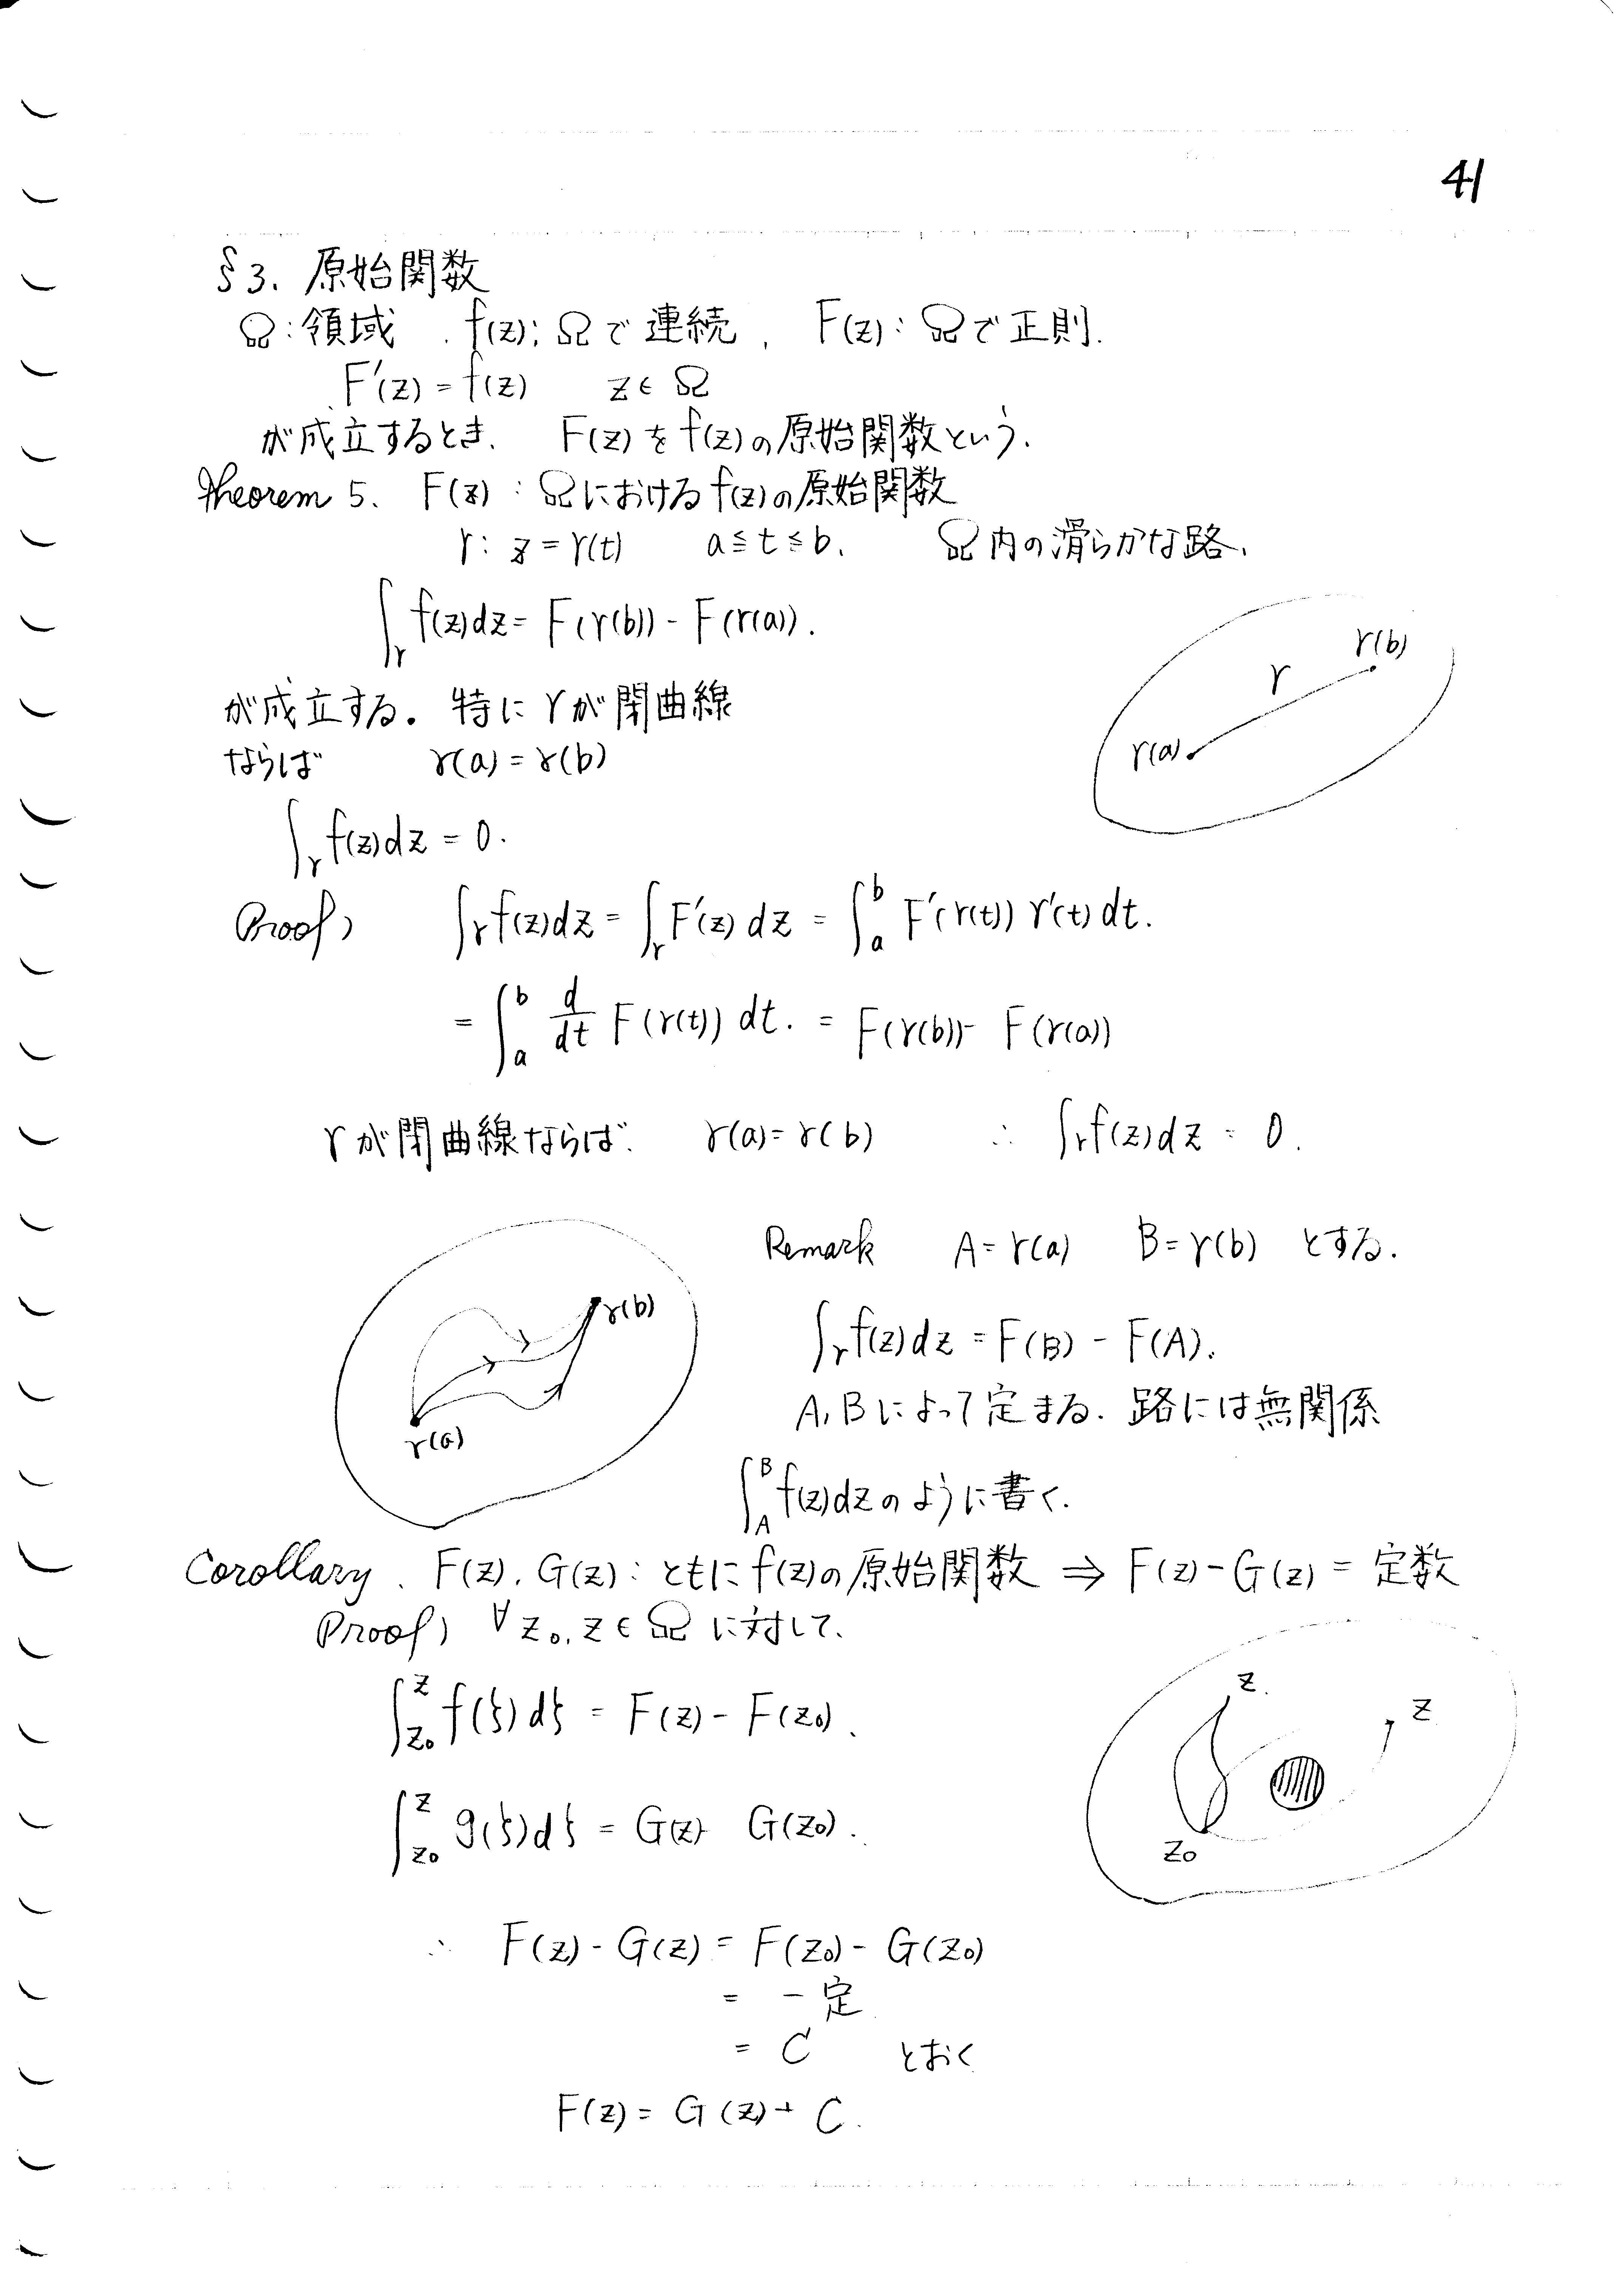 41
§3. 原始関数
Ω:領域. f(z); Ωで連続, F(z): Ωで正則.
F'(z) = f(z)  z ∈ Ω
が成立するとき. F(z)をf(z)の原始関数という.
Theorem 5. F(z) : Ωにおけるf(z)の原始関数
γ: z = γ(t)  a ≦ t ≦ b.  Ω内の滑らかな路.
∫_γ f(z)dz = F(γ(b)) - F(γ(a)).
γ(b)
γ
γ(a)
が成立する. 特にγが閉曲線
ならば  γ(a) = γ(b)
∫_γ f(z)dz = 0.
Proof)  ∫_γ f(z)dz = ∫_γ F'(z) dz = ∫_a^b F'(γ(t)) γ'(t) dt.
= ∫_a^b d/dt F(γ(t)) dt. = F(γ(b)) - F(γ(a))
γが閉曲線ならば.  γ(a) = γ(b)  ∴ ∫_γ f(z)dz = 0.
Remark  A = γ(a)  B = γ(b) とする.
γ(b)
γ(a)
∫_γ f(z)dz = F(B) - F(A).
A, Bによって定まる. 路には無関係
∫_A^B f(z)dz のように書く.
Corollary. F(z), G(z): ともにf(z)の原始関数 ⇒ F(z) - G(z) = 定数
Proof) ∀z₀, z ∈ Ω に対して.
∫_{z₀}^z f(ζ)dζ = F(z) - F(z₀).
z
z
z₀
∫_{z₀}^z g(ζ)dζ = G(z) - G(z₀).
∴ F(z) - G(z) = F(z₀) - G(z₀)
= 一定
= C  とおく
F(z) = G(z) + C.